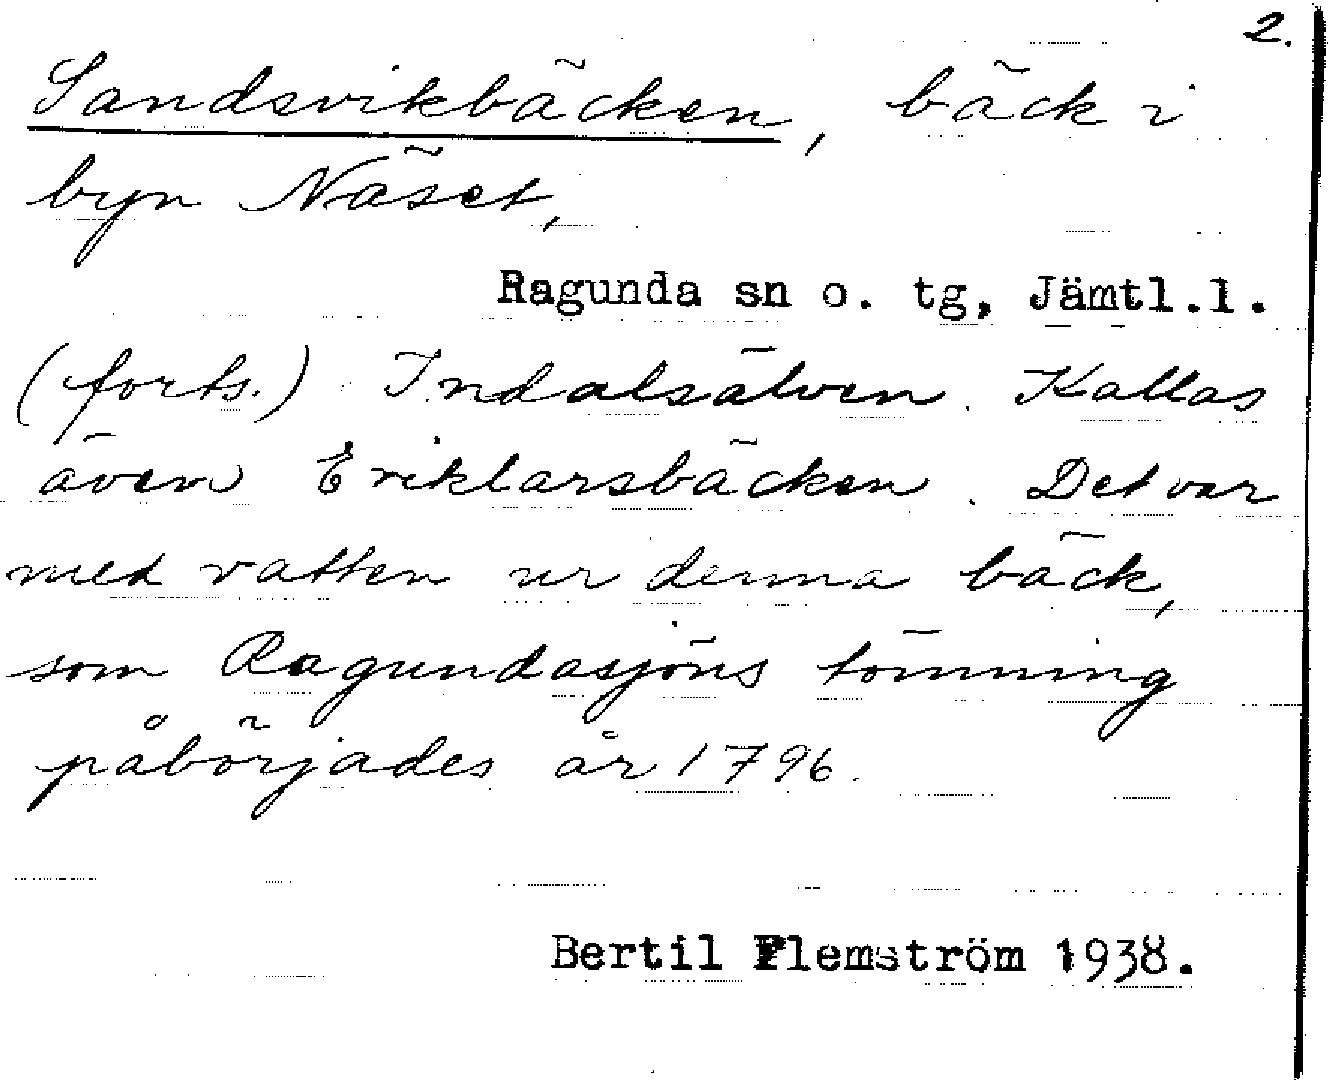 2.
Sandsvikbäcken, bäck i
byn Näset,
Ragunda sn o. tg, Jämtl.l.
(forts.) Indalsälven. Kallas
även Eriklarsbäcken. Det var
med vatten ur denna bäck,
som Ragundasjöns tömning
påbörjades år 1796.
Bertil Flemström 1938.